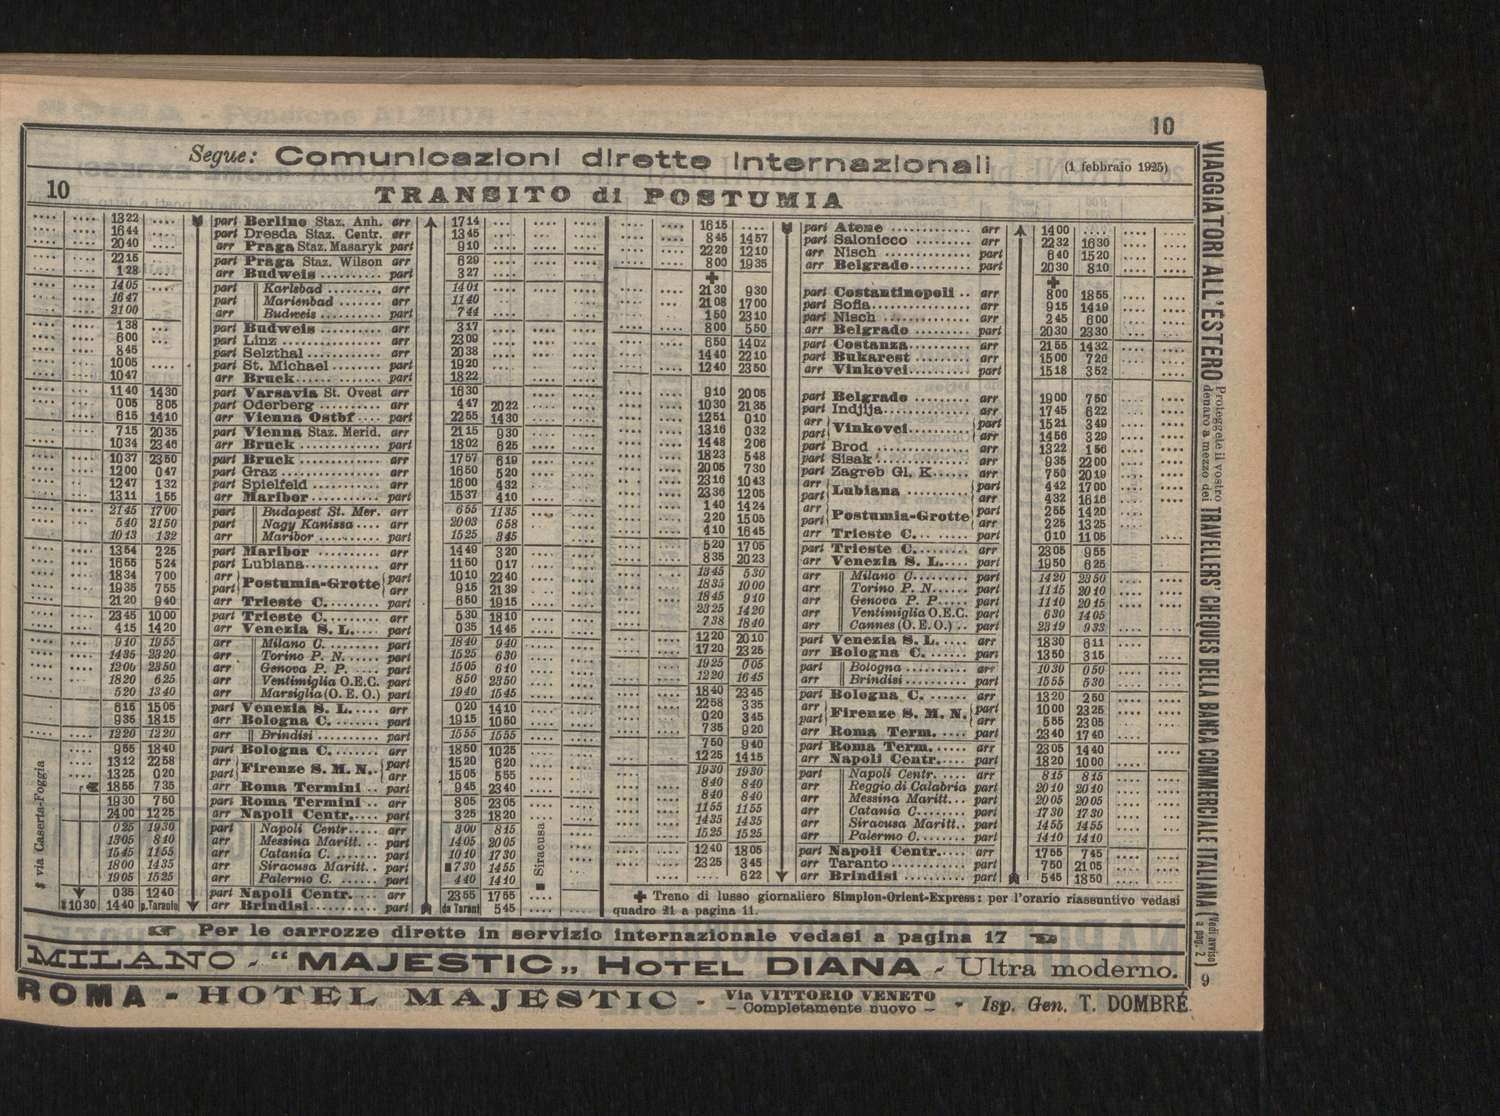 10
Segue: Comunicazioni dirette internazionali (1 febbraio 1925)
10 TRANSITO di POSTUMIA
13 22 part Berlino Staz. Anh. arr 17 14
16 44 part Dresda Staz. Centr. arr 13 45
20 40 arr Praga Staz. Masaryk part 9 10
22 15 part Praga Staz. Wilson arr 6 29
1 28 arr Budweis part 3 27
14 05 part Karlsbad arr 14 01
16 47 part Marienbad arr 11 40
21 00 arr Budweis part 7 44
1 38 part Budweis arr 3 17
6 00 part Linz arr 23 09
8 45 part Selzthal arr 20 38
10 05 part St. Michael part 19 20
10 47 arr Bruck part 18 22
11 40 14 30 part Varsavia St. Ovest arr 16 30
0 05 8 05 part Oderberg arr 4 47 20 22
6 15 14 10 arr Vienna Ostbf part 22 55 14 30
7 15 20 35 part Vienna Staz. Merid. arr 21 15 9 30
10 34 23 46 arr Bruck part 18 02 6 25
10 37 23 50 part Bruck arr 17 57 6 19
12 00 0 47 part Graz arr 16 50 5 20
12 47 1 32 part Spielfeld arr 16 00 4 32
13 11 1 55 arr Maribor part 15 37 4 10
21 45 17 00 part Budapest St. Mer. arr 6 55 11 35
5 40 21 50 part Nagy Kanissa arr 20 03 6 58
10 13 1 32 arr Maribor part 15 25 3 45
13 54 2 25 part Maribor arr 14 49 3 20
16 55 5 24 part Lubiana arr 11 50 0 17
18 34 7 00 arr Postumia-Grotte part 10 10 22 40
19 35 7 55 part arr 9 15 21 39
21 20 9 40 arr Trieste C. part 6 50 19 15
23 45 10 00 part Trieste C. arr 5 30 18 10
4 15 14 20 arr Venezia S. L. part 0 35 14 45
9 10 19 55 arr Milano C. part 18 40 9 40
14 35 23 20 arr Torino P. N. part 15 25 6 30
12 00 23 50 arr Genova P. P. part 15 05 6 10
18 20 6 25 arr Ventimiglia O.E.C. part 8 50 23 50
5 20 13 40 arr Marsiglia (O. E. O.) part 19 40 15 45
6 15 15 05 part Venezia S. L. arr 0 20 14 10
9 35 18 15 arr Bologna C. part 19 15 10 50
12 20 12 20 arr Brindisi part 15 55 15 55
9 55 18 40 part Bologna C. arr 18 50 10 25
13 12 22 58 arr Firenze S. M. N. part 15 20 6 20
13 25 0 20 part arr 15 05 5 55
18 55 7 35 arr Roma Termini part 9 45 23 40
19 30 7 50 part Roma Termini arr 8 05 23 05
24 00 12 25 arr Napoli Centr. part 3 25 18 20
0 25 19 30 part Napoli Centr. arr 3 00 8 15
13 05 8 40 arr Messina Maritt. part 14 05 20 05
15 45 11 55 arr Catania C. part 10 10 17 30
18 00 14 35 arr Siracusa Maritt. part ■ 7 30 14 55
19 05 15 25 arr Palermo C. part 4 40 14 10
0 35 12 40 part Napoli Centr. arr 23 55 17 55
10 30 14 40 p. Taranto arr Brindisi part da Tarant 5 45
via Caserta-Foggia
■ Siracusa
16 15 part Atene arr 14 00
8 45 14 57 part Salonicco arr 22 32 16 30
22 20 12 10 arr Nisch part 6 40 15 20
8 00 19 35 arr Belgrado part 20 30 8 10
✚ ✚
21 30 9 30 part Costantinopoli arr 8 00 18 55
21 08 17 00 part Sofia arr 9 15 14 19
1 50 23 10 part Nisch arr 2 45 6 00
8 00 5 50 arr Belgrado part 20 30 23 30
6 50 14 02 part Costanza arr 21 55 14 32
14 40 22 10 part Bukarest arr 15 00 7 20
12 40 23 50 arr Vinkovci part 15 18 3 52
9 10 20 05 part Belgrado arr 19 00 7 50
10 30 21 35 part Indjija arr 17 45 6 22
12 51 0 10 arr Vinkovci part 15 21 3 49
13 16 0 32 part arr 14 56 3 29
14 48 2 06 part Brod arr 13 22 1 56
18 23 5 48 part Sisak arr 9 35 22 00
20 05 7 30 part Zagreb Gl. K. arr 7 50 20 19
23 16 10 43 arr Lubiana part 4 42 17 00
23 36 12 05 part arr 4 32 16 16
1 40 14 24 arr Postumia-Grotte part 2 55 14 20
2 20 15 05 part arr 2 25 13 25
4 10 16 45 arr Trieste C. part 0 10 11 05
5 20 17 05 part Trieste C. arr 23 05 9 55
8 35 20 23 arr Venezia S. L. part 19 50 6 25
13 45 5 30 arr Milano C. part 14 20 23 50
18 35 10 00 arr Torino P. N. part 11 45 20 10
18 45 9 10 arr Genova P. P. part 11 40 20 15
23 25 14 20 arr Ventimiglia O.E.C. part 6 30 14 05
7 38 18 40 arr Cannes (O. E. O.) part 23 19 9 33
12 20 20 10 part Venezia S. L. arr 18 30 6 11
17 20 23 25 arr Bologna C. part 13 50 3 15
19 25 0 05 part Bologna arr 10 30 0 50
12 20 16 45 arr Brindisi part 15 55 5 30
18 40 23 45 part Bologna C. arr 13 20 2 50
22 58 3 35 arr Firenze S. M. N. part 10 00 23 25
0 20 3 45 part arr 5 55 23 05
7 35 9 20 arr Roma Term. part 23 40 17 40
7 50 9 40 part Roma Term. arr 23 05 14 40
12 25 14 15 arr Napoli Centr. part 18 20 10 00
19 30 19 30 part Napoli Centr. arr 8 15 8 15
8 40 8 40 arr Reggio di Calabria part 20 10 20 10
8 40 8 40 arr Messina Maritt. part 20 05 20 05
11 55 11 55 arr Catania C. part 17 30 17 30
14 35 14 35 arr Siracusa Maritt. part 14 55 14 55
15 25 15 25 arr Palermo C. part 14 10 14 10
12 40 18 05 part Napoli Centr. arr 17 55 7 45
23 25 3 45 arr Taranto part 7 50 21 05
6 22 arr Brindisi part 5 45 18 50
✚ Treno di lusso giornaliero Simplon-Orient-Express: per l'orario riassuntivo vedasi
quadro 21 a pagina 11.
☞ Per le carrozze dirette in servizio internazionale vedasi a pagina 17 ☜
MILANO - "MAJESTIC„ HOTEL DIANA - Ultra moderno.
ROMA - HOTEL MAJESTIC - Via VITTORIO VENETO - Completamente nuovo - - Isp. Gen. T. DOMBRÉ
VIAGGIATORI ALL'ESTERO Proteggete il vostro denaro a mezzo dei TRAVELLERS' CHEQUES DELLA BANCA COMMERCIALE ITALIANA (Vedi avviso a pag. 2)
9